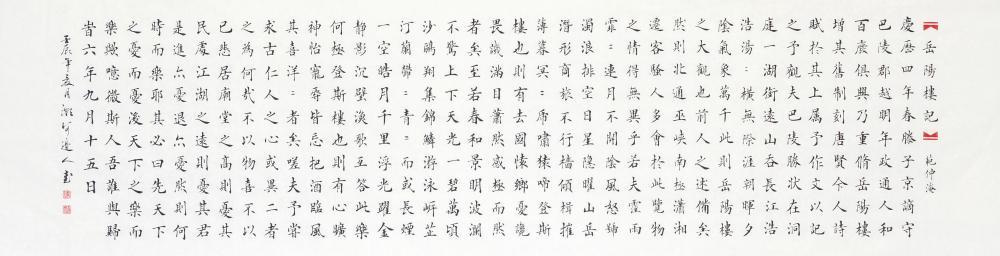 【岳陽樓記】范仲淹
慶曆四年春滕子京謫守
巴陵郡越明年政通人和
百廢俱興乃重修岳陽樓
增其舊制刻唐賢今人詩
賦於其上屬予作文以記
之予觀夫巴陵勝狀在洞
庭一湖銜遠山吞長江浩
浩湯:橫無際涯朝暉夕
陰氣象萬千此則岳陽樓
之大觀也前人之述備矣
然則北通巫峽南極瀟湘
遷客騷人多會於此覽物
之情得無異乎若夫霪雨
霏:連月不開陰風怒號
濁浪排空日星隱曜山岳
潛形商旅不行檣傾楫摧
薄暮冥:虎嘯猿啼登斯
樓也則有去國懷鄉憂讒
畏譏滿目蕭然感極而悲
者矣至若春和景明波瀾
不驚上下天光一碧萬頃
沙鷗翔集錦鱗游泳岸芷
汀蘭鬱:青:而或長煙
一空皓月千里浮光躍金
靜影沉璧漁歌互答此樂
何極登斯樓也則有心曠
神怡寵辱皆忘把酒臨風
其喜洋:者矣嗟夫予嘗
求古仁人之心或異二者
之為何哉不以物喜不以
己悲居廟堂之高則憂其
民處江湖之遠則憂其君
是進亦憂退亦憂然則何
時而樂耶其必曰先天下
之憂而憂後天下之樂而
樂歟噫微斯人吾誰與歸
旹六年九月十五日
壬辰年夏月 邊人書